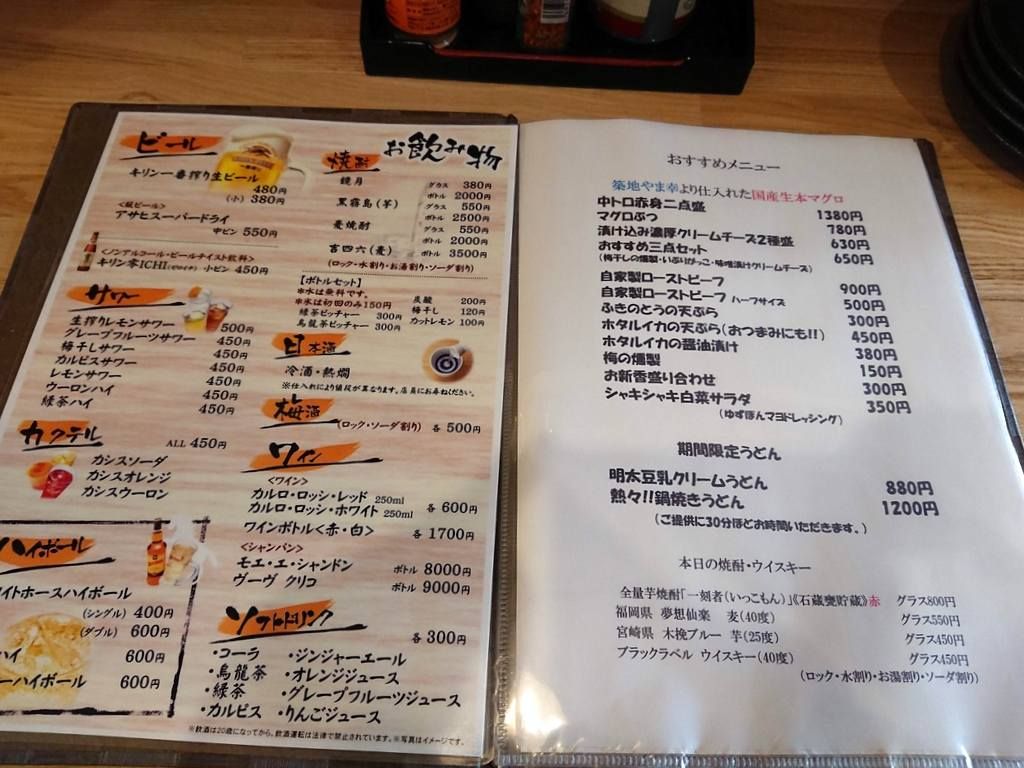 お飲み物
ビール
キリン一番搾り生ビール
480円
(小) 380円
<瓶ビール>
アサヒスーパードライ
中ビン 550円
<ノンアルコール・ビールテイスト飲料>
キリン零ICHI(ゼロイチ) 小ビン 450円
サワー
生搾りレモンサワー 500円
グレープフルーツサワー 450円
梅干しサワー 450円
カルピスサワー 450円
レモンサワー 450円
ウーロンハイ 450円
緑茶ハイ 450円
カクテル
ALL 450円
カシスソーダ
カシスオレンジ
カシスウーロン
ハイボール
イトホースハイボール
(シングル) 400円
(ダブル) 600円
ハイ 600円
ーハイボール 600円
焼酎
鏡月 グラス 380円
ボトル 2000円
黒霧島(芋) グラス 550円
ボトル 2500円
麦焼酎 グラス 550円
ボトル 2000円
吉四六(麦) ボトル 3500円
(ロック・水割り・お湯割り・ソーダ割り)
【ボトルセット】
※水は無料です。
※氷は初回のみ150円
緑茶ピッチャー 300円
烏龍茶ピッチャー 300円
炭酸 200円
梅干し 120円
カットレモン 100円
日本酒
冷酒・熱燗
※仕入れにより値段が異なります。店員にお尋ねください。
梅酒
(ロック・ソーダ割り) 各 500円
ワイン
<ワイン>
カルロ・ロッシ・レッド 250ml
カルロ・ロッシ・ホワイト 250ml 各 600円
ワインボトル<赤・白> 各 1700円
<シャンパン>
モエ・エ・シャンドン ボトル 8000円
ヴーヴ クリコ ボトル 9000円
ソフトドリンク
各 300円
・コーラ ・ジンジャーエール
・烏龍茶 ・オレンジジュース
・緑茶 ・グレープフルーツジュース
・カルピス ・りんごジュース
※飲酒は20歳になってから。飲酒運転は法律で禁止されています。※写真はイメージです。
おすすめメニュー
築地やま幸より仕入れた国産生本マグロ
中トロ赤身二点盛 1380円
マグロぶつ 780円
漬け込み濃厚クリームチーズ2種盛 630円
おすすめ三点セット 650円
(梅干しの燻製・いぶりがっこ・味噌漬けクリームチーズ)
自家製ローストビーフ 900円
自家製ローストビーフ ハーフサイズ 500円
ふきのとうの天ぷら 300円
ホタルイカの天ぷら(おつまみにも!!) 450円
ホタルイカの醤油漬け 380円
梅の燻製 150円
お新香盛り合わせ 300円
シャキシャキ白菜サラダ 350円
(ゆずぽんマヨドレッシング)
期間限定うどん
明太豆乳クリームうどん 880円
熱々!!鍋焼きうどん 1200円
(ご提供に30分ほどお時間いただきます。)
本日の焼酎・ウイスキー
全量芋焼酎「一刻者(いっこもん)」《石蔵甕貯蔵》赤 グラス800円
福岡県 夢想仙楽 麦(40度) グラス550円
宮崎県 木挽ブルー 芋(25度) グラス450円
ブラックラベル ウイスキー(40度) グラス450円
(ロック・水割り・お湯割り・ソーダ割り)